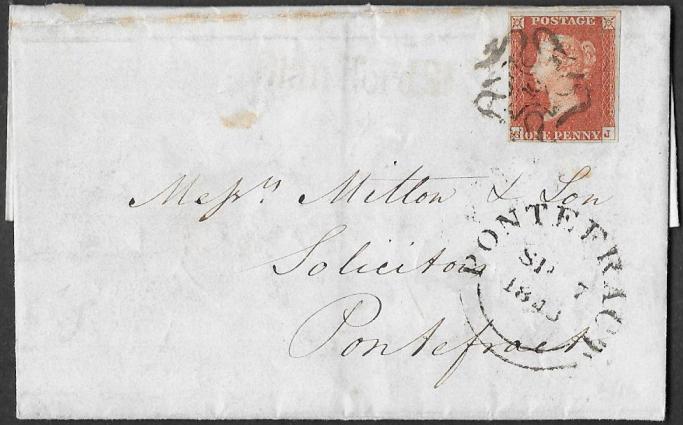 POSTAGE
ONE PENNY
J
Messrs Mitton & Son
Solicitors
Pontefract
PONTEFRACT
SP 7